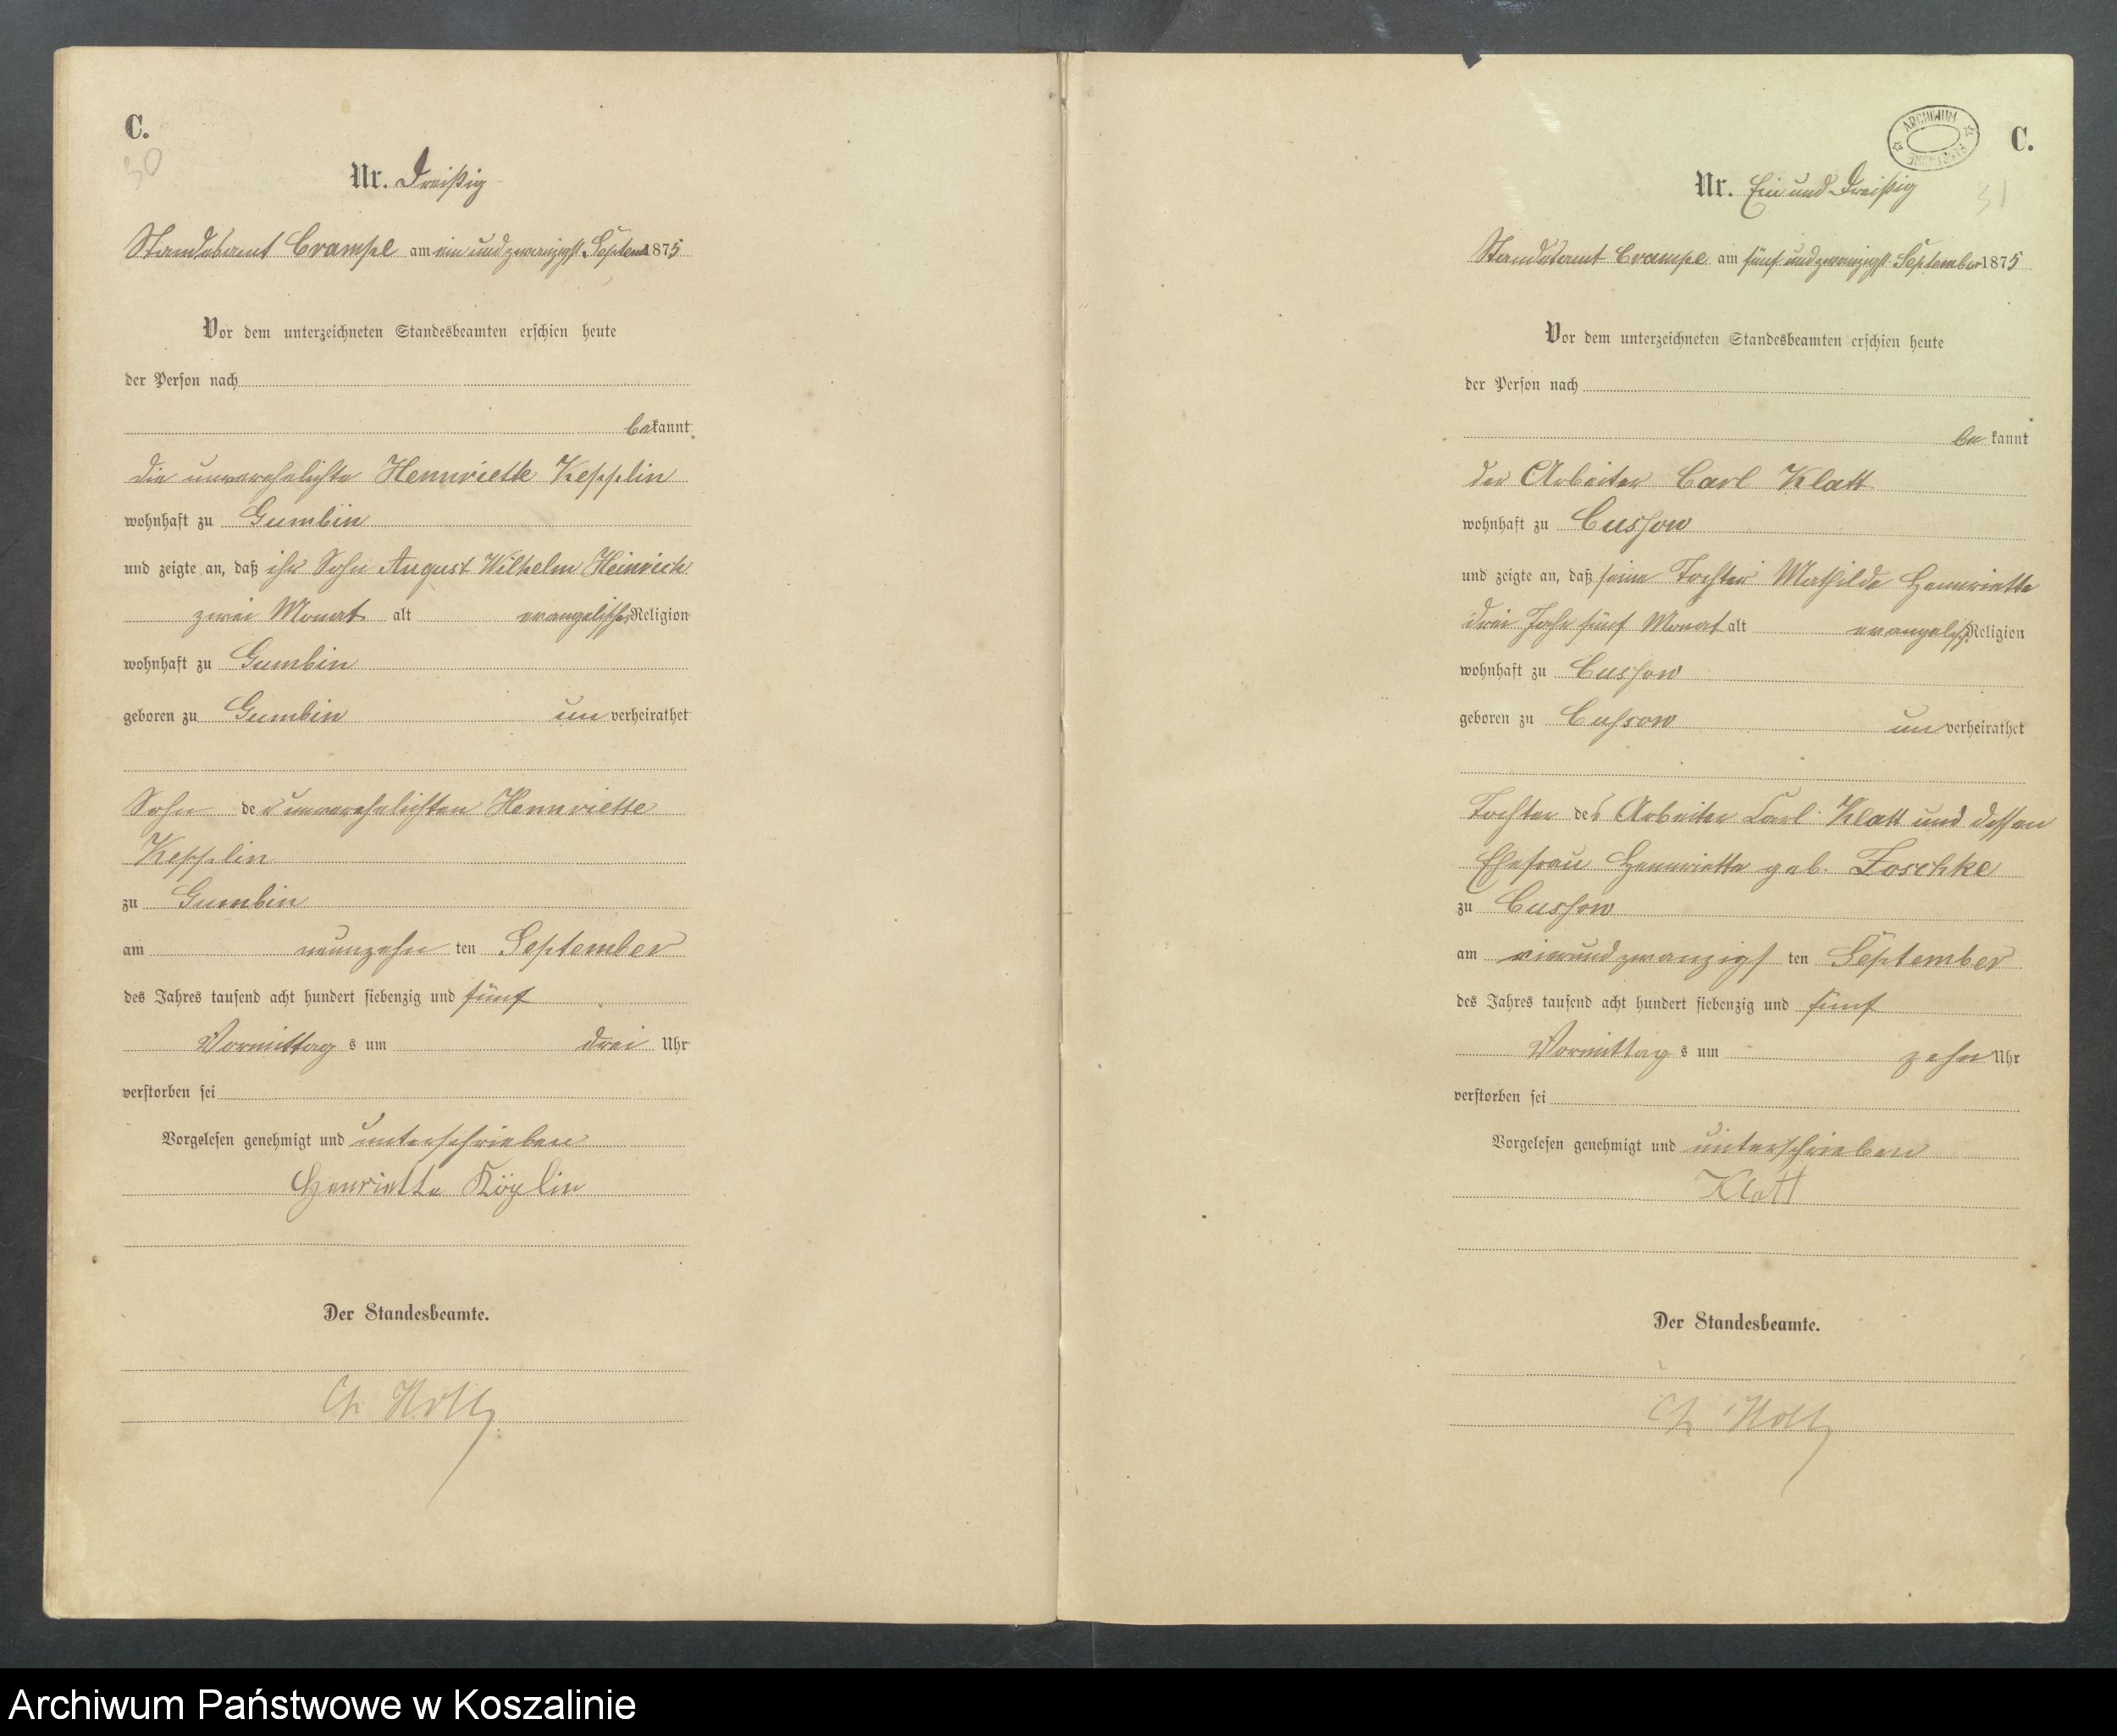 C.
30
Nr. Dreißig
Standesamt Crampe am ein und zwanzigst. Septemb 1875
Vor dem unterzeichneten Standesbeamten erschien heute
der Person nach
bekannt
die unverehelichte Hennriette Kepplin
wohnhaft zu Gumbin
und zeigte an, daß ihr Sohn August Wilhelm Heinrich
zwei Monat alt evangelischer Religion
wohnhaft zu Gumbin
geboren zu Gumbin unverheirathet
Sohn der unverehelichten Hennriette
Kepplin
zu Gumbin
am neunzehnten September
des Jahres tausend acht hundert siebenzig und fünf
Vormittags um drei Uhr
verstorben sei
Vorgelesen genehmigt und unterschrieben
Henriette Köplin
Der Standesbeamte.
C.
ARCHIWUM
31
Nr. Ein und Dreißig
Standesamt Crampe am fünf und zwanzigst. September 1875
Vor dem unterzeichneten Standesbeamten erschien heute
der Person nach
bekannt
der Arbeiter Carl Klatt
wohnhaft zu Cussow
und zeigte an, daß seine Tochter Mathilde Hennriette
drei Jahr fünf Monat alt evangelisch. Religion
wohnhaft zu Cussow
geboren zu Cussow unverheirathet
Tochter des Arbeiter Carl Klatt und dessen
Ehefrau Hennriette geb. Foschke
zu Cussow
am vierundzwanzigsten September
des Jahres tausend acht hundert siebenzig und fünf
Vormittags um zehn Uhr
verstorben sei
Vorgelesen genehmigt und unterschrieben
Klatt
Der Standesbeamte.
Archiwum Państwowe w Koszalinie